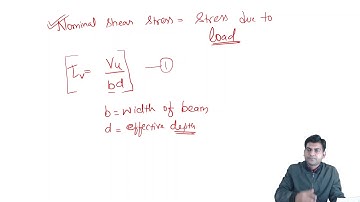 Nominal shear stress = Stress due to
load
τv = Vu/bd —①
b = width of beam
d = effective depth